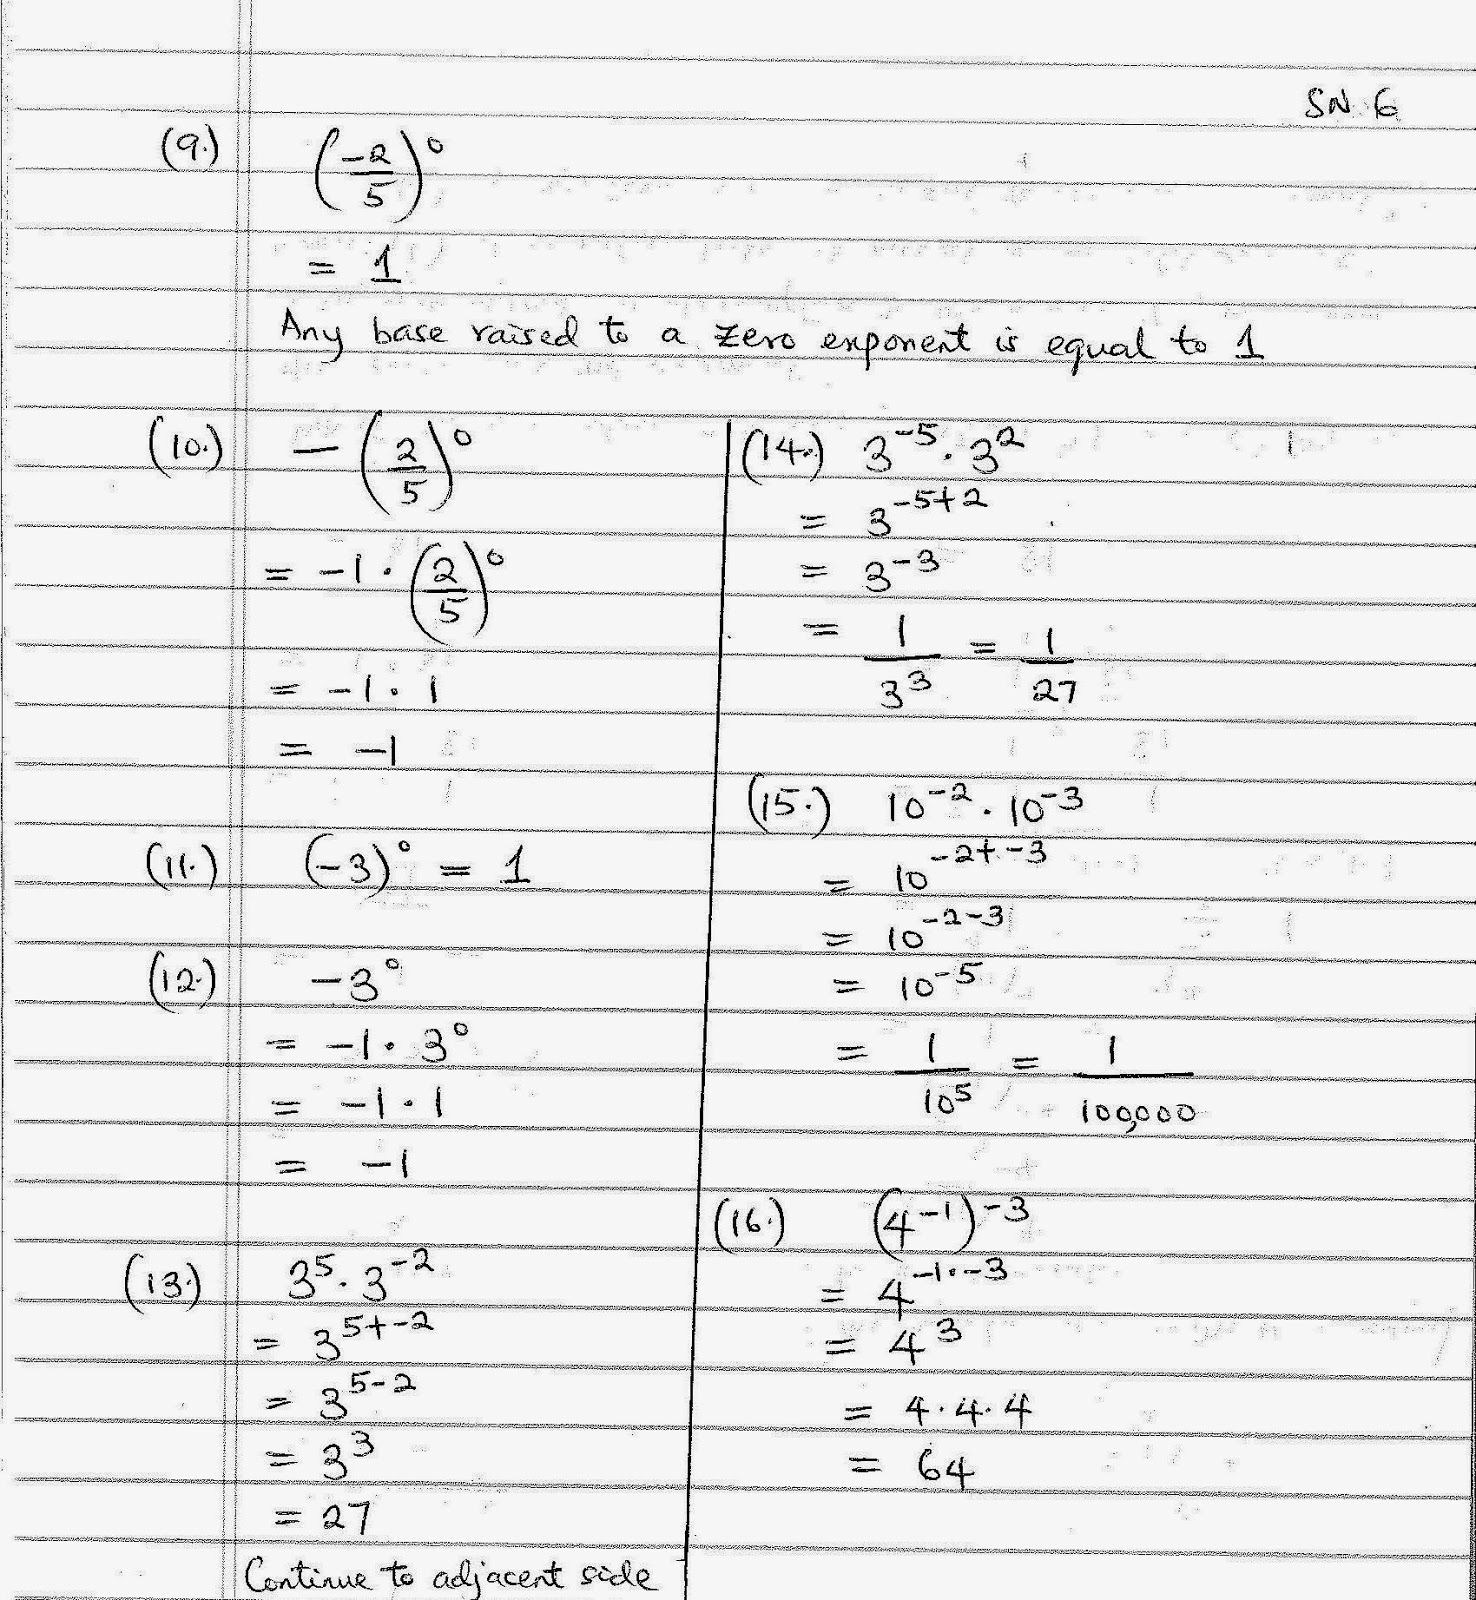 SN. 6
(9.) (-2/5)⁰
= 1
Any base raised to a zero exponent is equal to 1
(10.) - (2/5)⁰
= -1 · (2/5)⁰
= -1 · 1
= -1
(11.) (-3)⁰ = 1
(12.) -3⁰
= -1 · 3⁰
= -1 · 1
= -1
(13.) 3⁵ · 3⁻²
= 3⁵⁺⁻²
= 3⁵⁻²
= 3³
= 27
Continue to adjacent side
(14.) 3⁻⁵ · 3²
= 3⁻⁵⁺²
= 3⁻³
= 1/3³ = 1/27
(15.) 10⁻² · 10⁻³
= 10⁻²⁺⁻³
= 10⁻²⁻³
= 10⁻⁵
= 1/10⁵ = 1/100,000
(16.) (4⁻¹)⁻³
= 4⁻¹·⁻³
= 4³
= 4 · 4 · 4
= 64